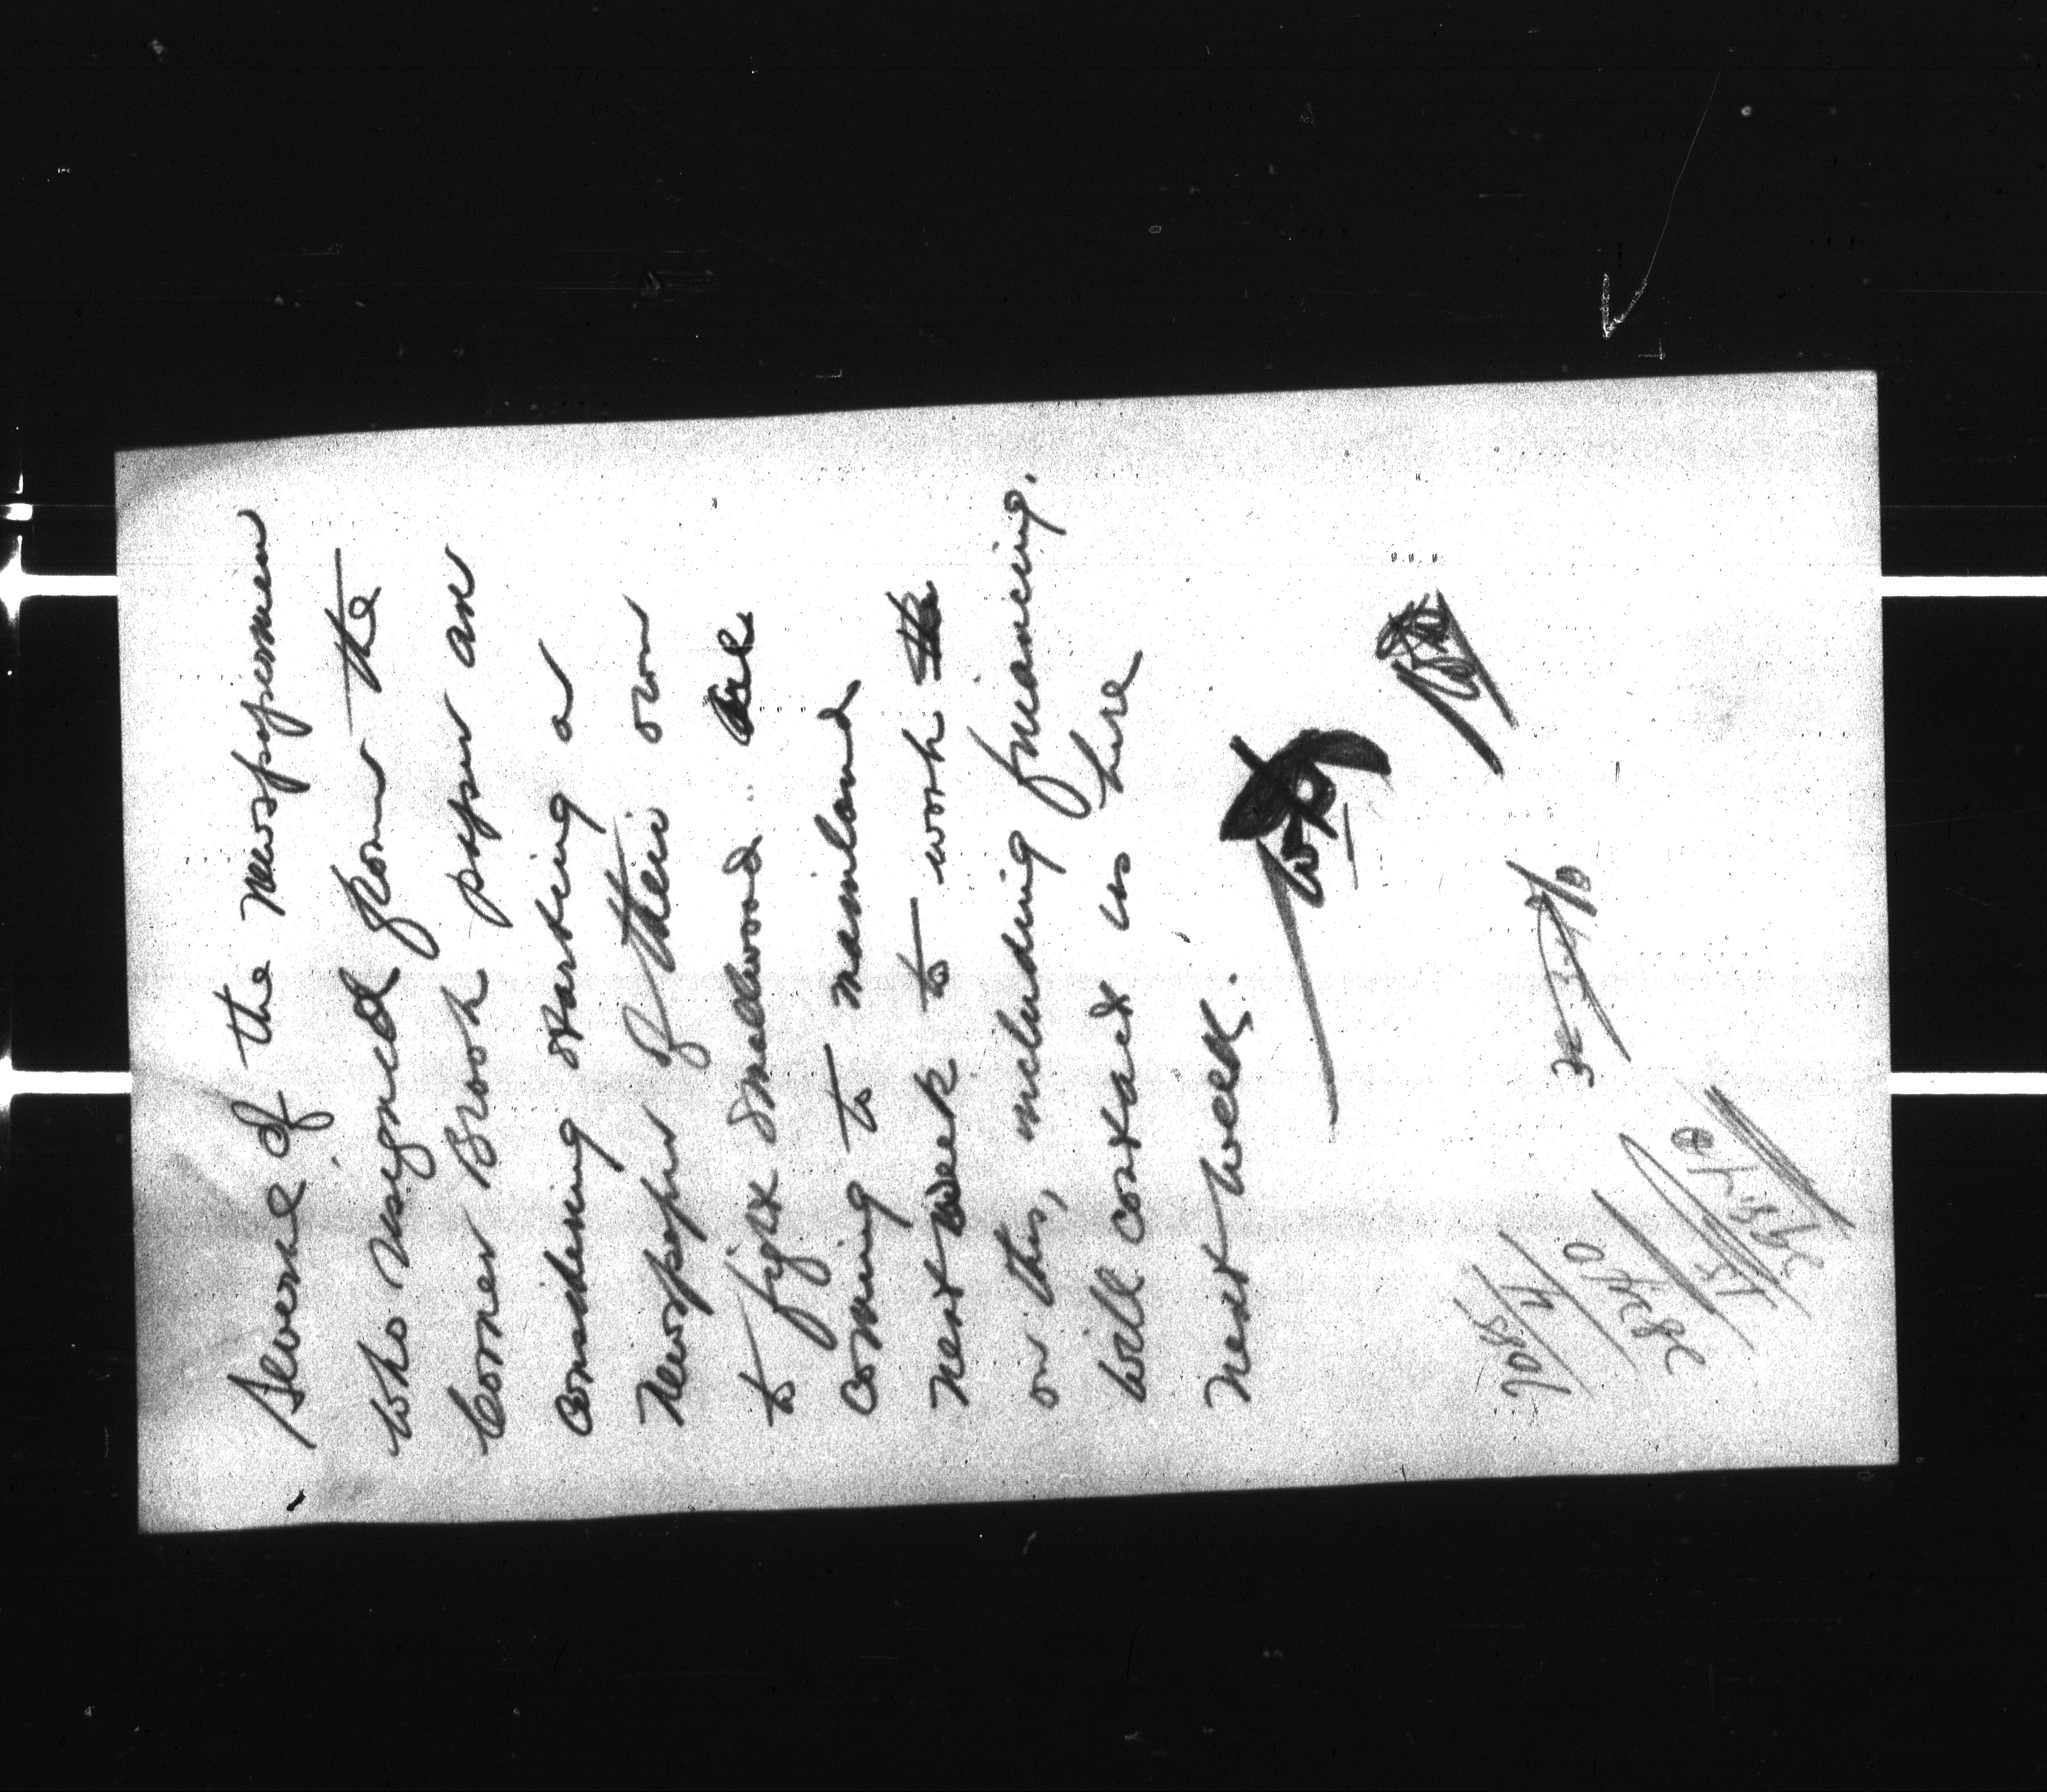 Several of the newspapermen
who resigned from the
Corner Brook paper are
considering starting a
newspaper of their own
to fight Smallwood. Are
coming to mainland
next week to work
on this, including financing.
Will contact us here
next week.